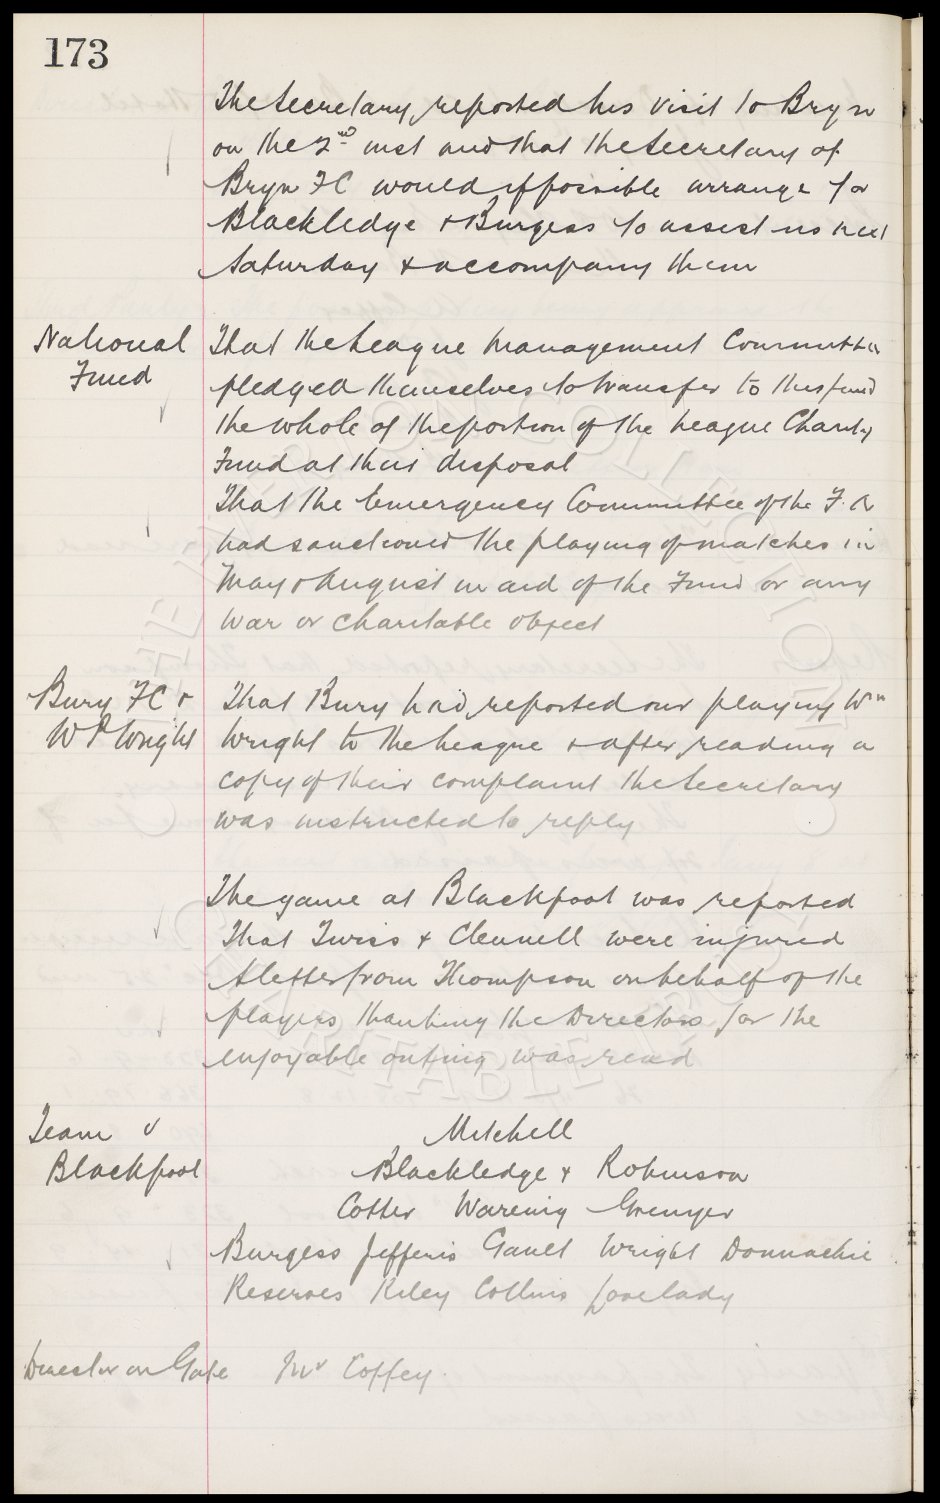 173
The Secretary, reported his visit to Bryn
on the 2nd inst and that the Secretary of
Bryn FC would if possible arrange for
Blackledge & Burgess to assist us next
Saturday & accompany them
National
Fund
That the League Management Committee
pledged themselves to transfer to this fund
the whole of the portion of the League Charity
Fund at their disposal
That the Emergency Committee of the F.A
had sanctioned the playing of matches in
May & August in aid of the Fund or any
War or Charitable object
Bury FC &
W P Wright
That Bury had reported our playing Wm
Wright to the League & after reading a
copy of their complaint the Secretary
was instructed to reply
The game at Blackpool was reported
That Twiss & Clennell were injured
A letter from Thompson on behalf of the
players thanking the Directors for the
enjoyable outing was read
Team v
Blackpool
Mitchell
Blackledge & Robinson
Cotter Wareing Grenyer
Burgess Jefferis Gault Wright Donnachie
Reserves Riley Collins Lovelady
Director on Gate Mr Coffey
THE EVERTON COLLECTION
CHARITABLE TRUST